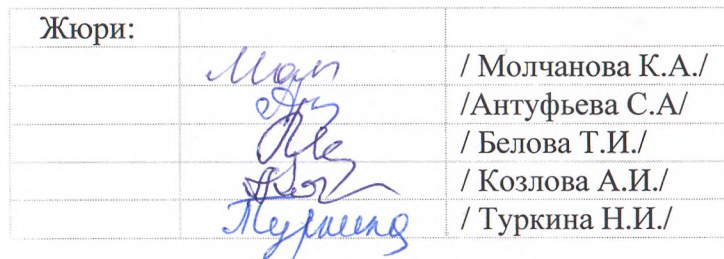 Жюри:
/ Молчанова К.А./
/Антуфьева С.А/
/ Белова Т.И./
/ Козлова А.И./
Туркина / Туркина Н.И./